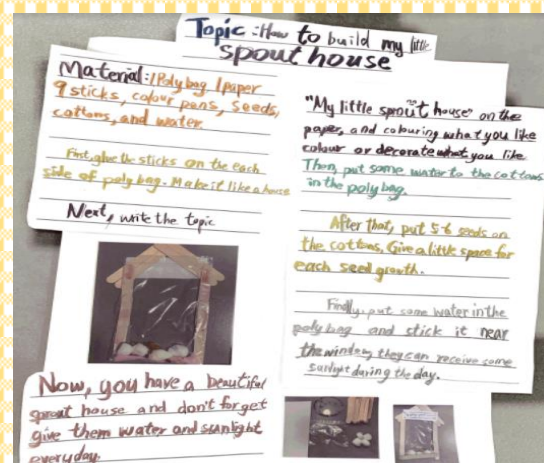 Topic : How to build my little
spout house
Material : 1 Poly bag 1 paper
9 sticks, colour pens, seeds,
cottons, and water.
First, glue the sticks on the each
side of poly bag. Make it like a house
Next, write the topic
"My little sprout house" on the
paper, and colouring what you like
colour or decorate what you like
Then, put some water to the cottons
in the poly bag.
After that, put 5-6 seeds on
the cottons, Give a little space for
each seed growth.
Finally, put some water in the
poly bag and stick it near
the window, they can receive some
sunlight during the day.
Now, you have a beautiful
sprout house and don't forget
give them water and sunlight
everyday.